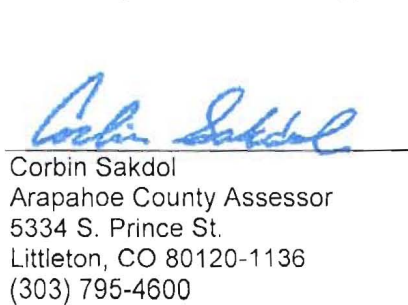 Corbin Sakdol
Corbin Sakdol
Arapahoe County Assessor
5334 S. Prince St.
Littleton, CO 80120-1136
(303) 795-4600